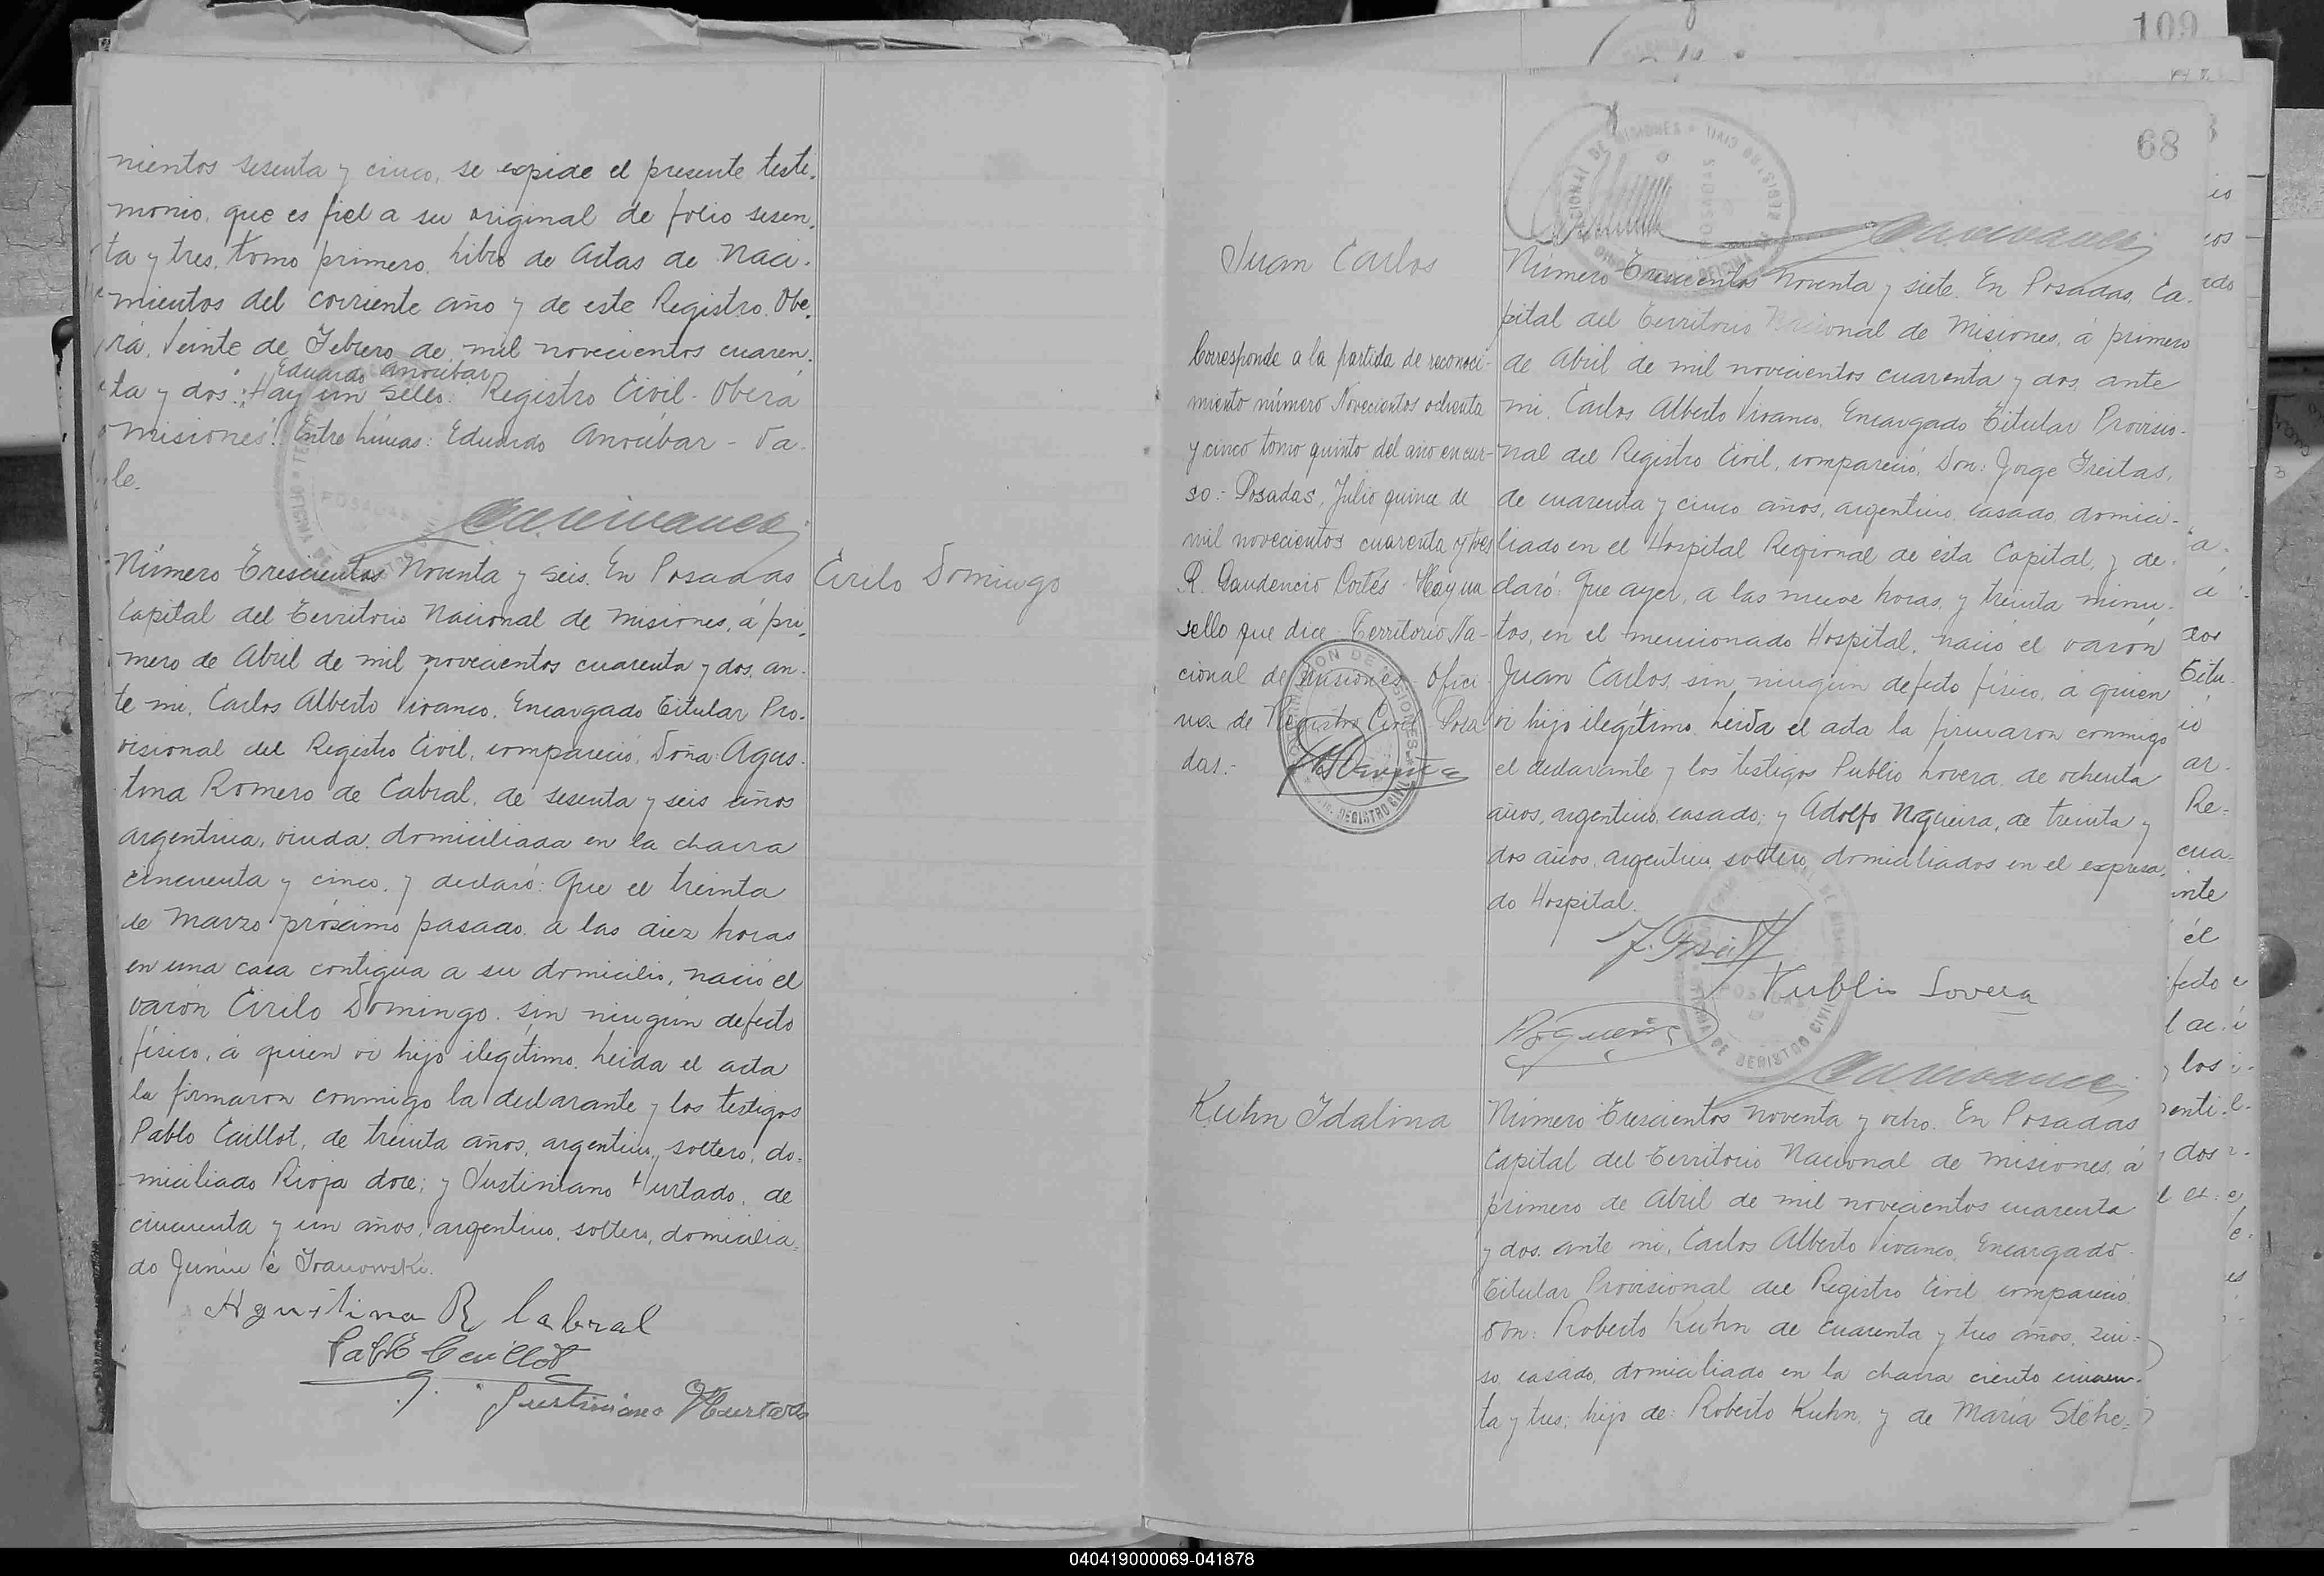 nientos sesenta y cinco, se expide el presente testi-
monio, que es fiel a su original de folio sesen-
ta y tres, tomo primero, Libro de Actas de Naci-
mientos del corriente año y de este Registro. Obe-
rá, Veinte de Febrero de mil novecientos cuaren-
Eduardo Anoubar
ta y dos". Hay un sello: "Registro Civil - Oberá
Misiones". Entre líneas: Eduardo Anoubar - Va-
le.
Número Trescientos Noventa y seis. En Posadas
Cirilo Domingo
Capital del Territorio Nacional de Misiones, á pri-
mero de Abril de mil novecientos cuarenta y dos, an-
te mi, Carlos Alberto Vivanco, Encargado Titular Pro-
visional del Registro Civil, compareció, Doña: Agus-
tina Romero de Cabral, de sesenta y seis años
argentina, viuda, domiciliada en la chacra
cincuenta y cinco, y declaró: Que el treinta
de Marzo próximo pasado, a las diez horas
en una casa contigua a su domicilio, nació el
varón Cirilo Domingo, sin ningún defecto
físico, á quien vi hijo ilegítimo. Leida el acta
la firmaron conmigo la declarante y los testigos
Pablo Caillot, de treinta años, argentino, soltero, do-
miciliado Rioja doce; y Justiniano Hurtado, de
cincuenta y un años, argentino, soltero, domicilia-
do Junín é Ivanowski.
Agustina R Cabral
Pablo Caillot
Justiniano Hurtado
109
68
Juan Carlos
Número Trescientos Noventa y siete. En Posadas, Ca-
pital del Territorio Nacional de Misiones, á primero
de Abril de mil novecientos cuarenta y dos, ante
mi, Carlos Alberto Vivanco, Encargado Titular Provisio-
nal del Registro Civil, compareció, Don: Jorge Freitas,
de cuarenta y cinco años, argentino, casado, domici-
liado en el Hospital Regional de esta Capital, y de-
claró: Que ayer, a las nueve horas, y treinta minu-
tos, en el mencionado Hospital, nació el varón
Juan Carlos, sin ningún defecto físico, á quien
vi hijo ilegítimo. Leida el acta la firmaron conmigo
el declarante y los testigos Publio Lovera, de ochenta
años, argentino, casado; y Adolfo Nogueira, de treinta y
dos años, argentino, soltero, domiciliados en el expresa-
do Hospital.
Corresponde a la partida de reconoci-
miento número Novecientos ochenta
y cinco tomo quinto del año en cur-
so.- Posadas, Julio quince de
mil novecientos cuarenta y tres
R. Gaudencio Cortés - Hay un
sello que dice: Territorio Na-
cional de Misiones - Ofici-
na de Registro Civil - Posa-
das.-
J. Freitas
Publio Lovera
Nogueira
Kuhn Idalina
Número Trescientos noventa y ocho. En Posadas
Capital del Territorio Nacional de Misiones, á
primero de Abril de mil novecientos cuarenta
y dos, ante mi, Carlos Alberto Vivanco, Encargado
Titular Provisional del Registro Civil compareció,
Don: Roberto Kuhn de cuarenta y tres años, sui-
so, casado, domiciliado en la chacra ciento cincuen-
ta y tres; hijo de: Roberto Kuhn, y de María Stehe-
040419000069-041878